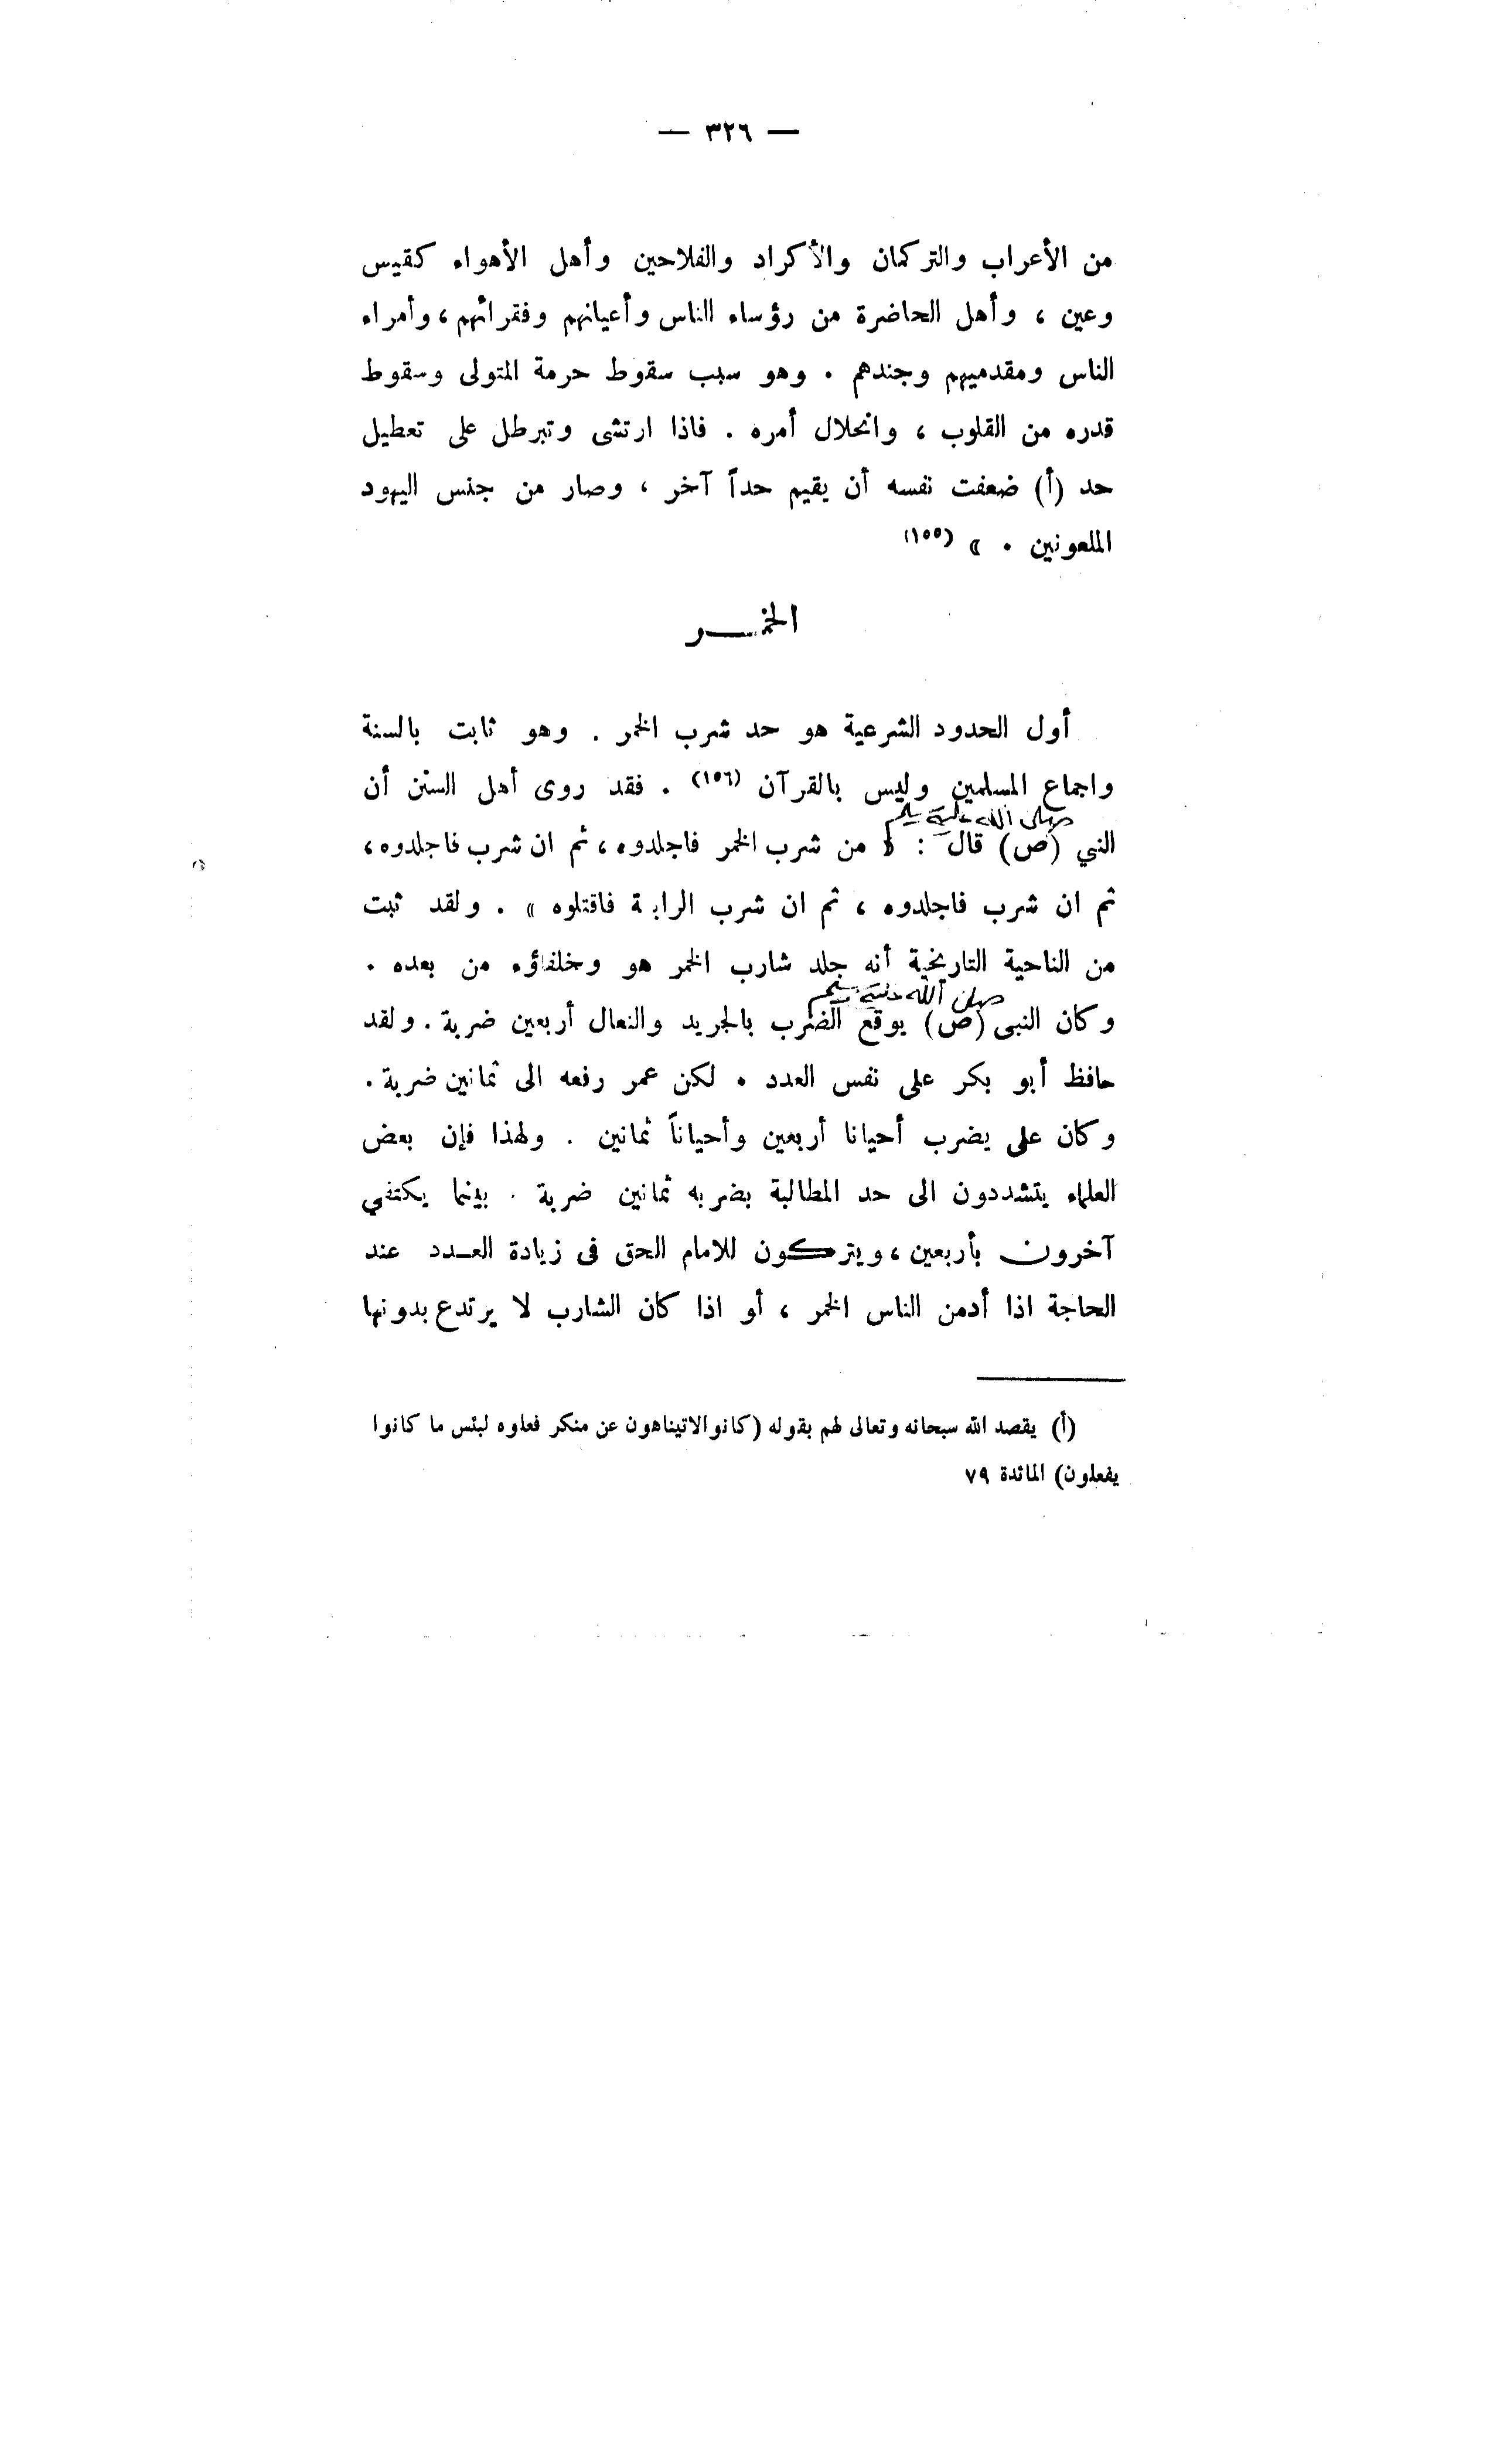 — ٣٢٦ —
من الأعراب والتركمان والأكراد والفلاحين وأهل الأهواء كقيس
وعين ، وأهل الحاضرة من رؤساء الناس وأعيانهم وفقرائهم ، وأمراء
الناس ومقدميهم وجندهم . وهو سبب سقوط حرمة المتولى وسقوط
قدره من القلوب ، وانحلال أمره . فاذا ارتشى وتبرطل على تعطيل
حد (أ) ضعفت نفسه أن يقيم حداً آخر ، وصار من جنس اليهود
الملعونين . » (١٥٥)
الخمــر
أول الحدود الشرعية هو حد شرب الخمر . وهو ثابت بالسنة
واجماع المسلمين وليس بالقرآن (١٥٦) . فقد روى أهل السنن أن
صلى الله عليه وسلم
النبي (ص) قال : « من شرب الخمر فاجلدوه ، ثم ان شرب فاجلدوه ،
ثم ان شرب فاجلدوه ، ثم ان شرب الرابعة فاقتلوه » . ولقد ثبت
من الناحية التاريخية أنه جلد شارب الخمر هو وخلفاؤه من بعده .
صلى الله عليه وسلم
وكان النبى (ص) يوقع الضرب بالجريد والنعال أربعين ضربة . ولقد
حافظ أبو بكر على نفس العدد . لكن عمر رفعه الى ثمانين ضربة .
وكان على يضرب أحيانا أربعين وأحياناً ثمانين . ولهذا فإن بعض
العلماء يتشددون الى حد المطالبة بضربه ثمانين ضربة . بينما يكتفي
آخرون بأربعين ، ويتركون للامام الحق فى زيادة العــدد عند
الحاجة اذا أدمن الناس الخمر ، أو اذا كان الشارب لا يرتدع بدونها
(أ) يقصد الله سبحانه وتعالى لهم بقوله (كانوا لاتيناهون عن منكر فعلوه لبئس ما كانوا
يفعلون) المائدة ٧٩